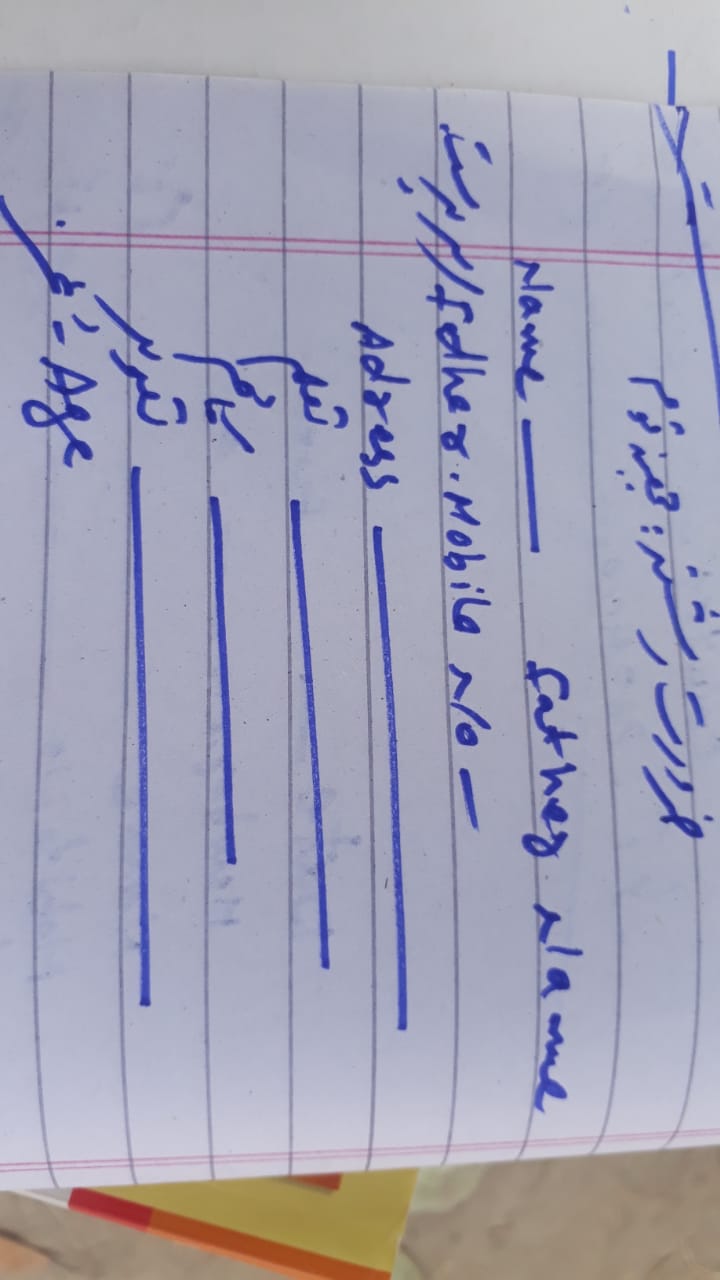 ضرورت رشتہ: جھینہ قوم
Name — Father Name
سرپرست/Fdher. Mobile N/o —
Adress —
تعلم —
کام —
تصویر —
عمر - Age